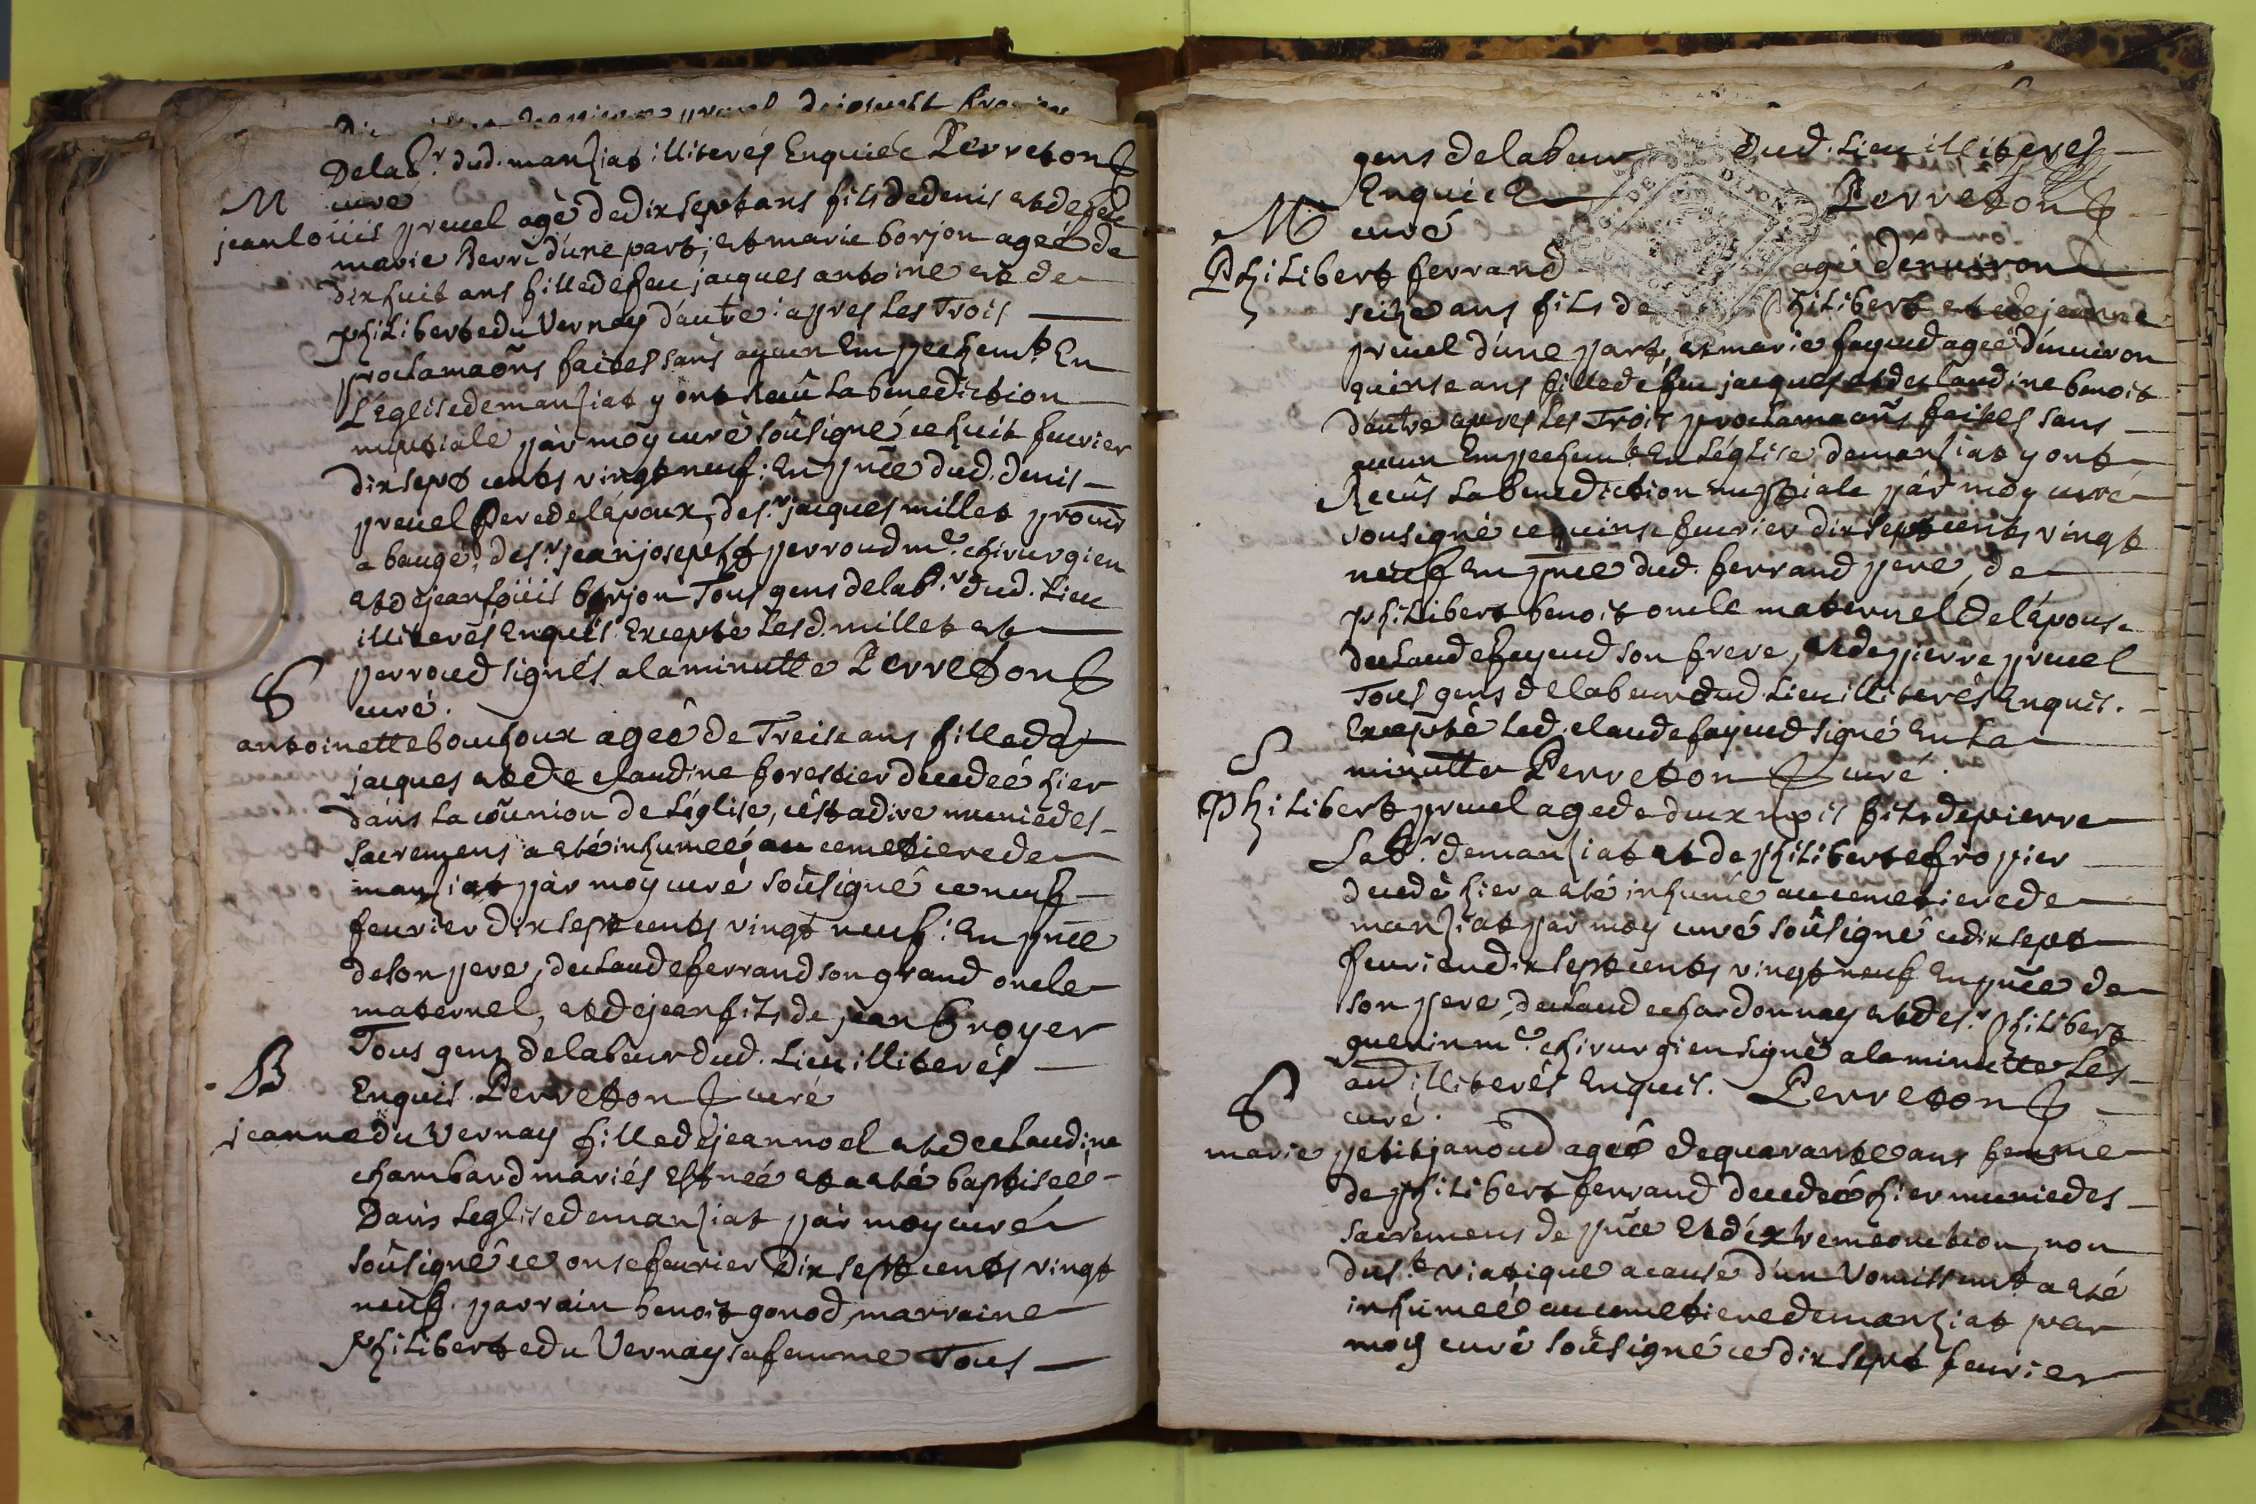 De lab.r dud. manziat illiterés Enquiée Perreton
curé
M
jean loüis pruel agé de dix sept ans fils de denis et de feüe
marie Berri d'une part; et marie borjon ageé de
dix huit ans fille de feu jacques antoine et de
philiberte du Vernay d'autre: apres les Trois
proclamaõns faites sans aucun Empechem.t En
L'Eglise de manziat y ont Reçû La benediction
nuptiale pàr moy curé soûsigné ce huit feurier
dix sept cents vingt neuf: En pñce dud. denis
pruel Pere de lépoux, de s.r jacques millet
a baugé, de s.r jean joseph perroud m.e chirurgien
et de jean loüis borjon Tous gens de lab.r dud. Lieu
illiterés Enquis Excepté Lesd. millet et
perroud signés a la minutte Perreton
curé.
S
antoinette bouchoux ageé de Treise ans fille de
jacques et de claudine forestier decedeé hier
dans la coũnion de L'église, c'est a dire munie des
sacremens a eté inhumeé au cemetiere de
manziat pàr moy curé soûsigné ce neuf
feurier dix sept cents vingt neuf: En pñce
de son pere, de claude ferrand son grand oncle
maternel, et de jean fils de jean broyer
Tous gens de labeur dud. Lieu illiterés
B
Enquis. Perreton curé
jeanne du Vernay fille de jean noel et de claudine
chambard mariés Est neé et a eté baptiseé
Dans Leglise de manziat pàr moy curé
soûsigné ce onse feurier Dix sept cents vingt
neuf. parrain benoit gonod, marraine
philiberte du Vernay sa femme Tous
gens de labeur dud. Lieu illiterés
Enquiée Perreton
M
curé
Philibert ferrand agé denuiron
seize ans fils de Philibert et de jeanne
pruel d'une part, et marie fayeud ageé d'enuiron
quinse ans fille de feu jacques et de claudine benoit
d'autre apres Les Trois proclamaõns faites sans
aucun Empechem.t En L'église de manziat y ont
Receûs La benediction nuptiale pàr moy curé
sousigné ce quinse feurier dix sept cents vingt
neuf En pnce dud. ferrand pere, de
philibert benoit oncle maternel de lépouse
de claude fayeud son frere, et de pierre pruel
Tous gens de labeur dud. Lieu illiterés Enquis.
Excepté Led. claude fayeud signé En La
S
minutte Perreton curé.
Philibert pruel agé de deux mois fils de pierre
Lab.r de manziat et de philiberte fropier
decedé hier a eté inhumé au cemetiere de
manziat pàr moy curé soûsigné ce dix sept
feurier dix sept cents vingt neuf En pñce de
son pere, de claude chardonnay et de s.r philibert
guerin m.e chirurgien signé a la minutte Les
au illiterés Enquis. Perreton
S
curé.
marie petitjanoud ageé de quarante ans femme
de philibert ferrand decedeé hier munie des
sacremens de pñce Et déxtremeonction, non
du s.t viatique a cause d'un Vomissem.t a eté
inhumeé au cemetiere de manziat par
moy curé soûsigné ce dix sept feurier